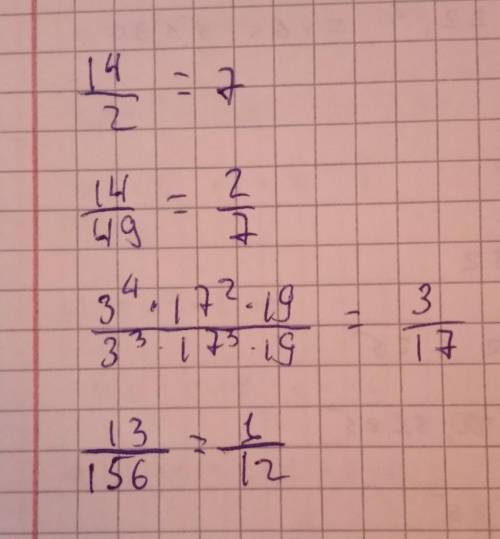 14/2 = 7
14/49 = 2/7
3⁴·17²·19/3³·17³·19 = 3/17
13/156 = 1/12